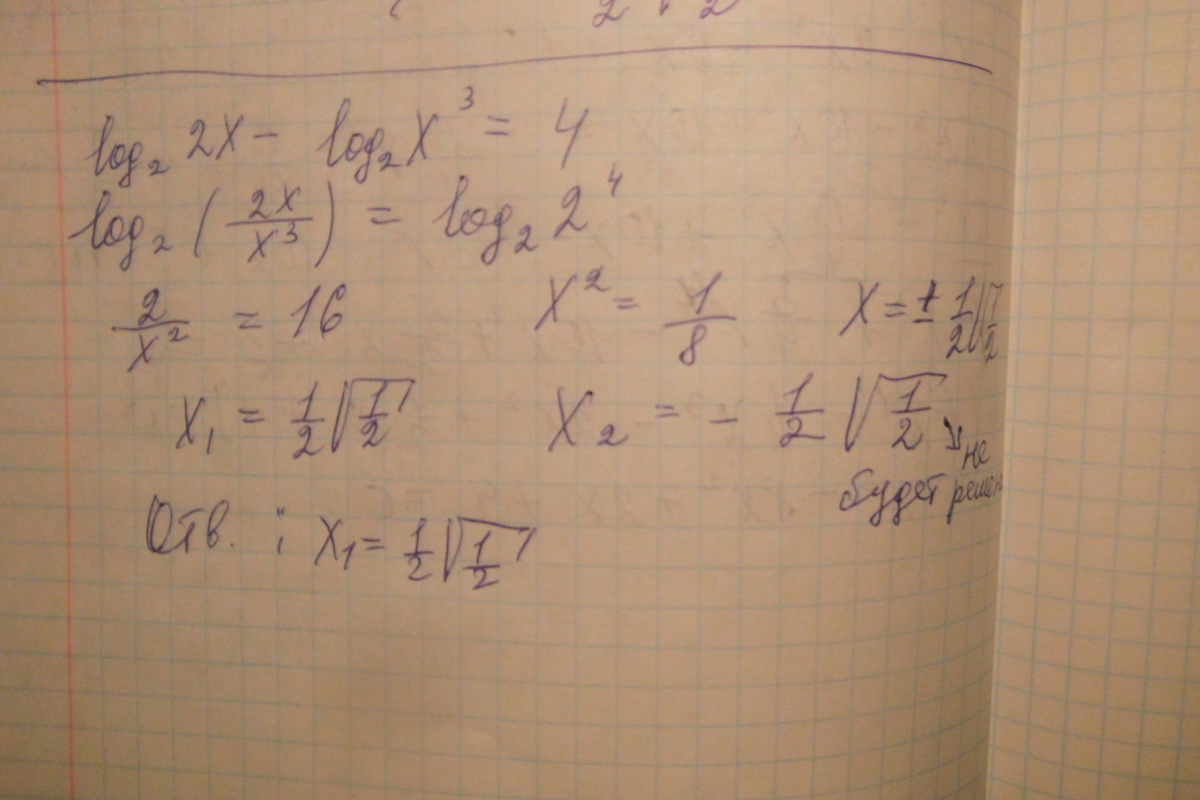 log₂ 2x - log₂ x³ = 4
log₂ (2x/x³) = log₂ 2⁴
2/x² = 16 x² = 1/8 x = ± 1/2 √1/2
x₁ = 1/2 √1/2 x₂ = - 1/2 √1/2 ↘ не
будет решен
Отв. : x₁ = 1/2 √1/2